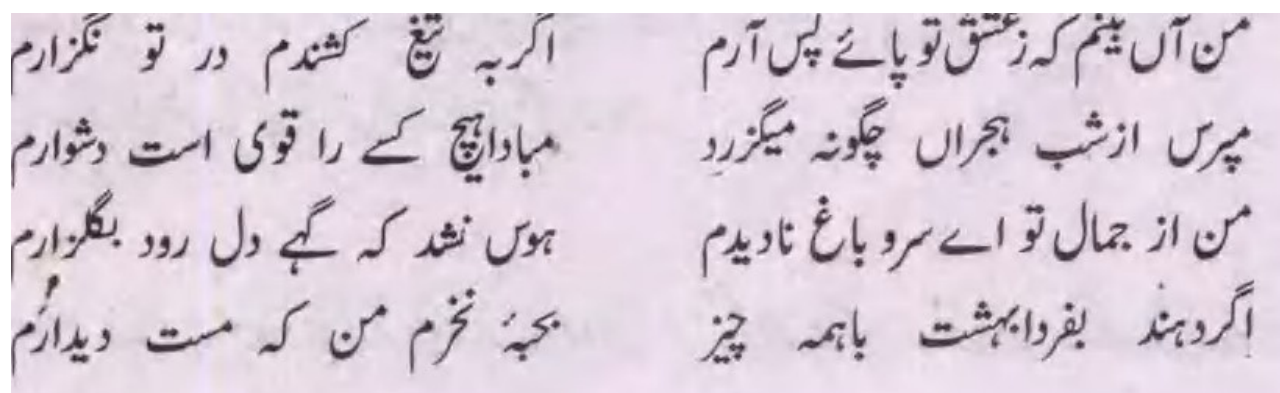 من آں نیم کہ ز عشق تو پائے پس آرم اگر بہ تیغ کشندم در تو نگزارم
مپرس از شب ہجراں چگونہ میگزرد مباداہیچ کسے را قوی است دشوارم
من از جمال تو اے سرو باغ نادیدم ہوس نشد کہ گہے دل رود بگلزارم
اگر دہند بفردا بہشت باہمہ چیز بحبۂ نخرم من کہ مست دیدارم